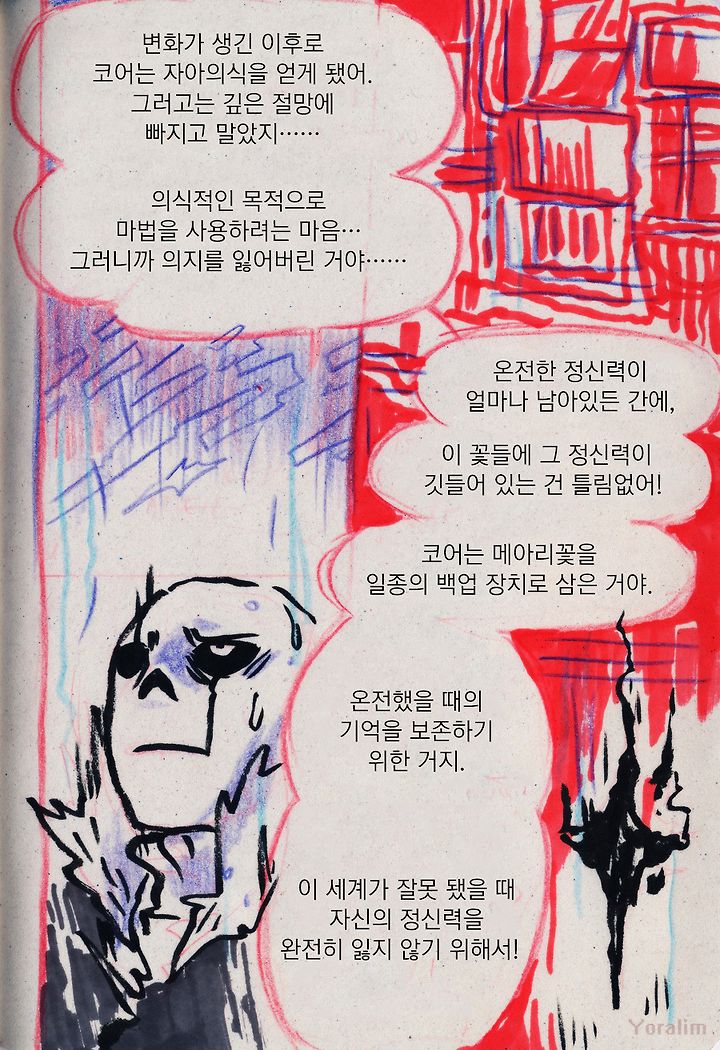 변화가 생긴 이후로
코어는 자아의식을 얻게 됐어.
그러고는 깊은 절망에
빠지고 말았지……
의식적인 목적으로
마법을 사용하려는 마음…
그러니까 의지를 잃어버린 거야……
온전한 정신력이
얼마나 남아있든 간에,
이 꽃들에 그 정신력이
깃들어 있는 건 틀림없어!
코어는 메아리꽃을
일종의 백업 장치로 삼은 거야.
온전했을 때의
기억을 보존하기
위한 거지.
이 세계가 잘못 됐을 때
자신의 정신력을
완전히 잃지 않기 위해서!
Yoralim